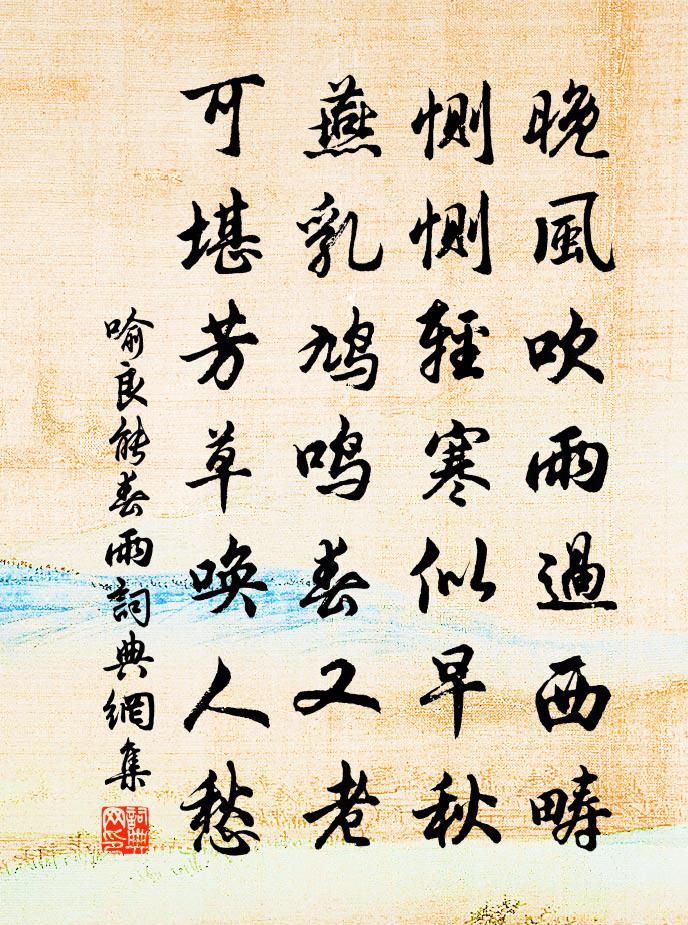 晚風吹雨過西疇
惻惻輕寒似早秋
燕乳鳩鳴春又老
可堪芳草喚人愁
喻良能春雨詞典網集
詞典網印